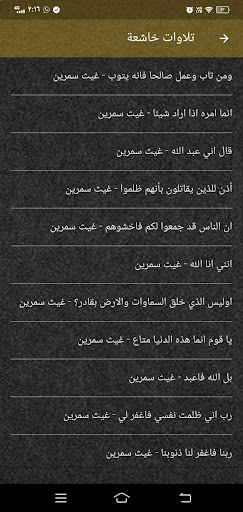 ٣:١٦
تلاوات خاشعة
ومن تاب وعمل صالحا فانه يتوب - غيث سمرين
انما امره اذا اراد شيئا - غيث سمرين
قال اني عبد الله - غيث سمرين
أذن للذين يقاتلون بأنهم ظلموا - غيث سمرين
ان الناس قد جمعوا لكم فاخشوهم - غيث سمرين
انني انا الله - غيث سمرين
اوليس الذي خلق السماوات والارض بقادر؟ - غيث سمرين
يا قوم انما هذه الدنيا متاع - غيث سمرين
بل الله فاعبد - غيث سمرين
رب اني ظلمت نفسي فاغفر لي - غيث سمرين
ربنا فاغفر لنا ذنوبنا - غيث سمرين